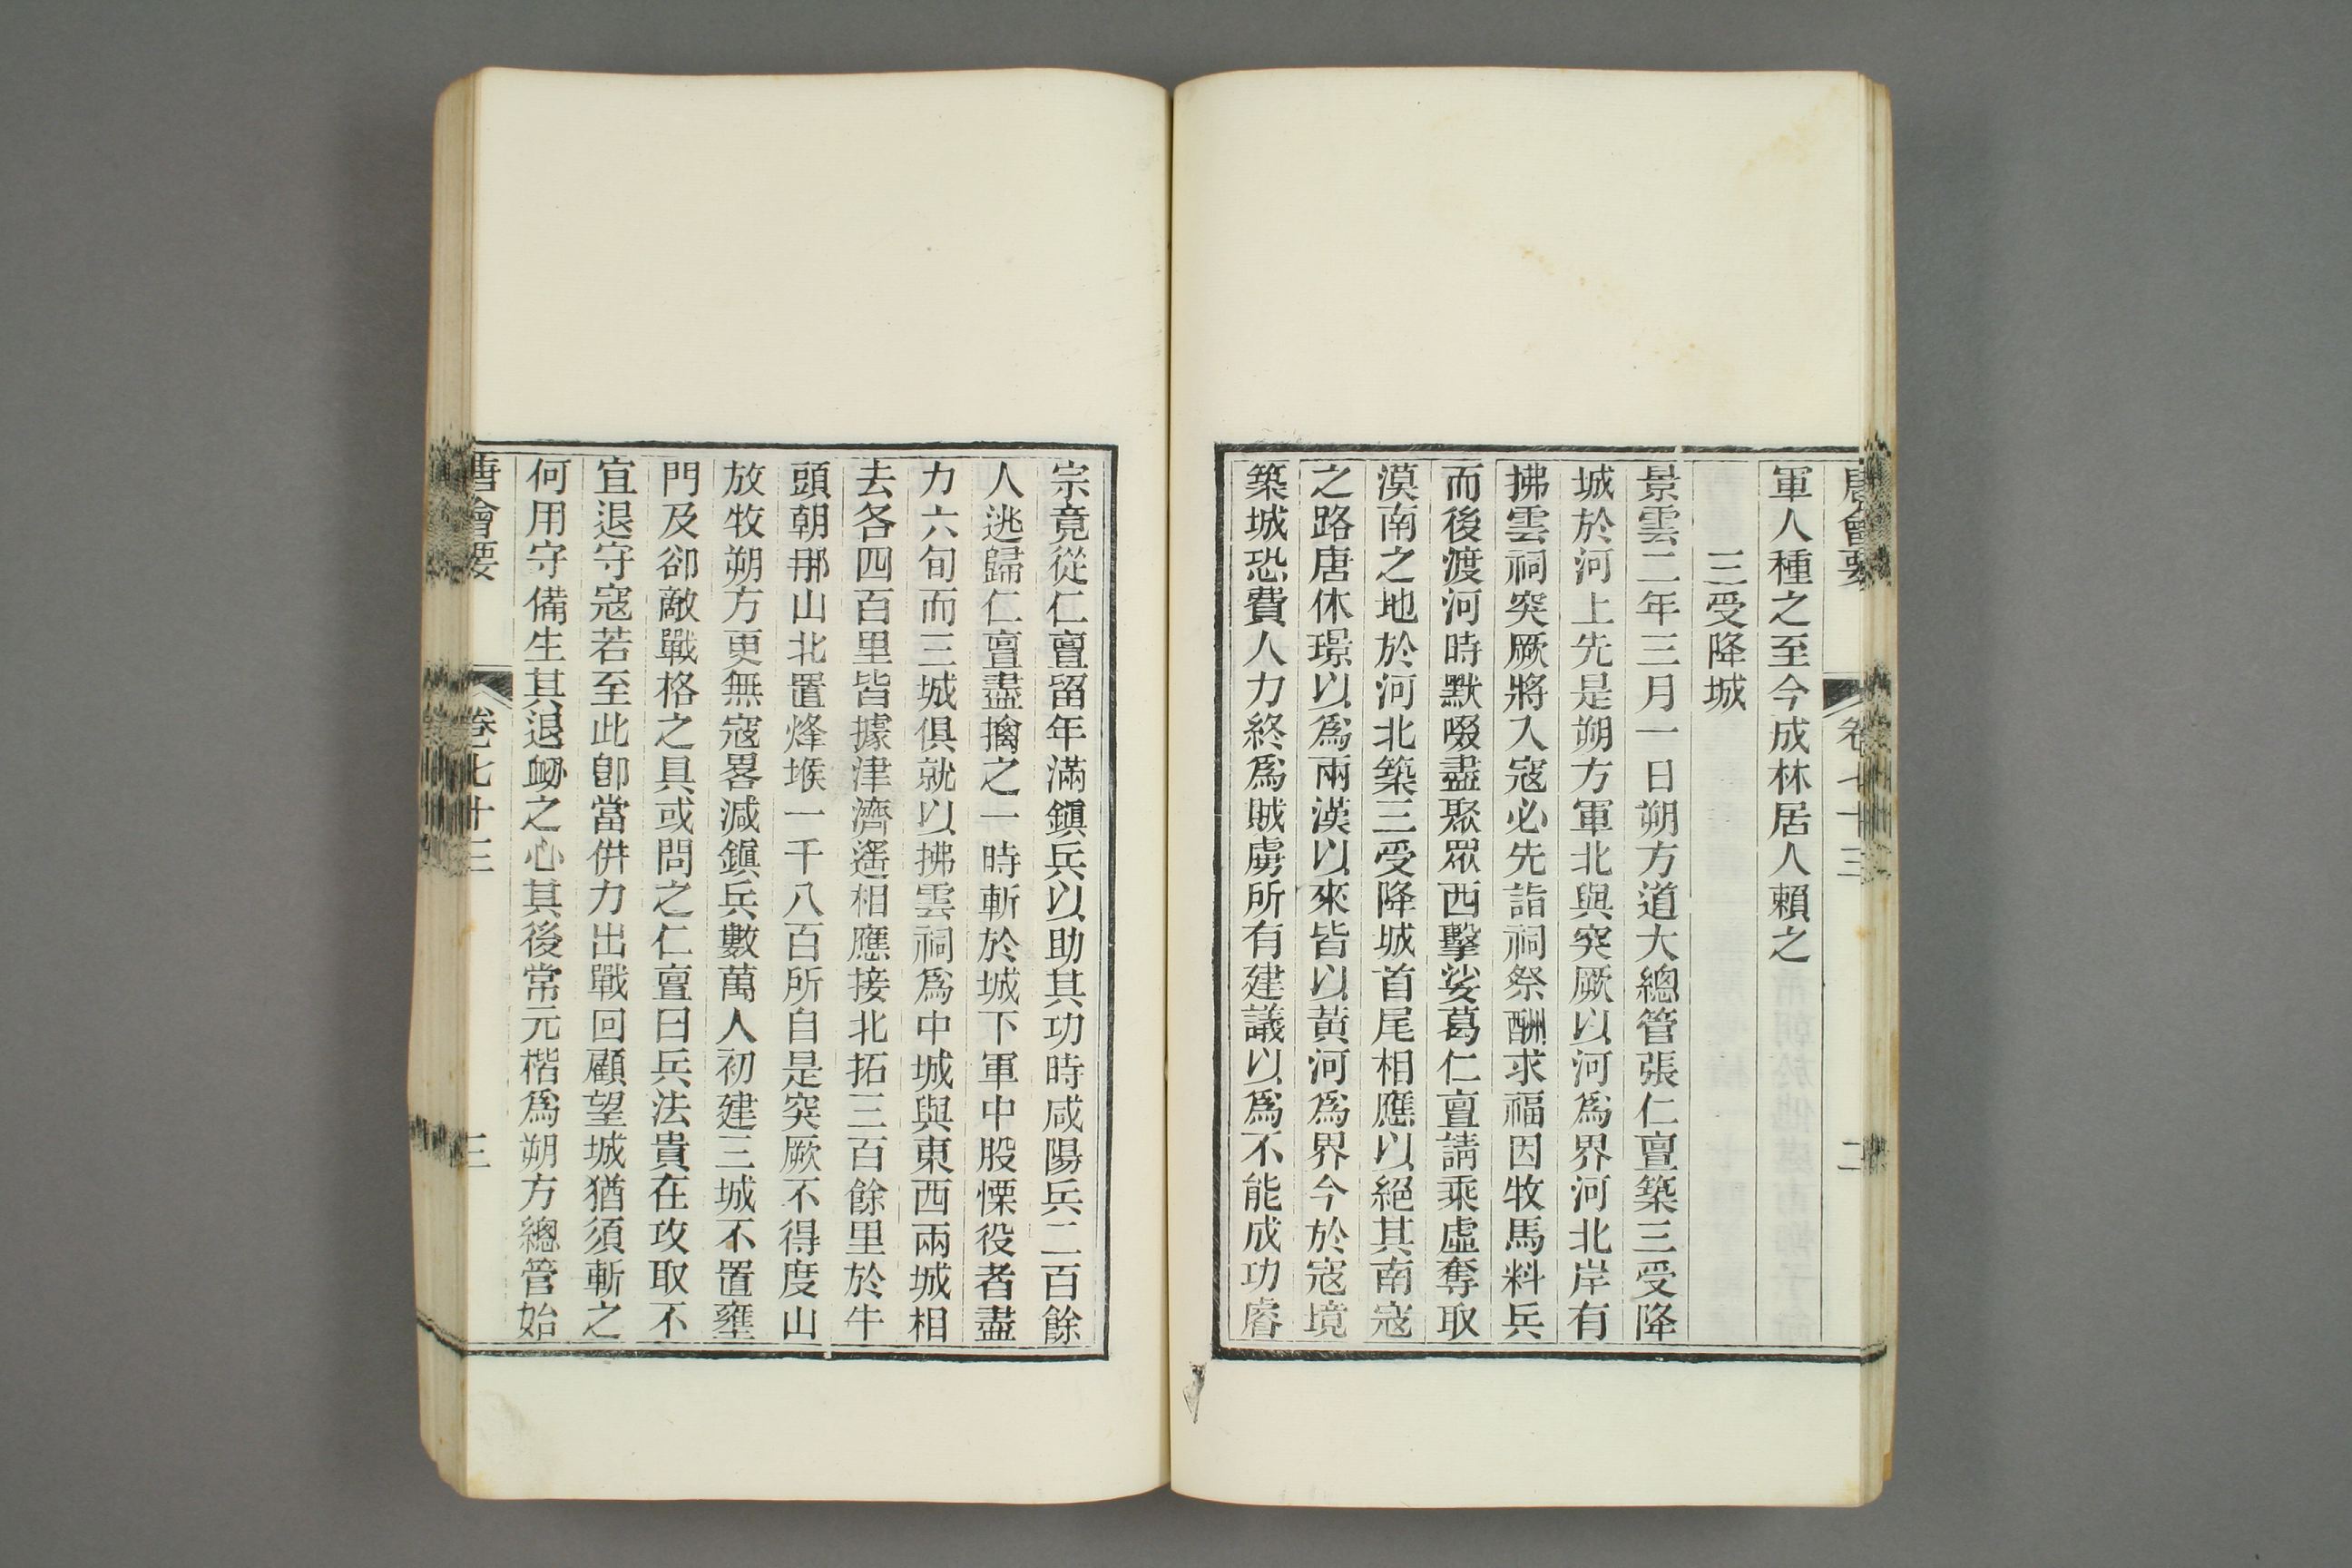 唐會要　卷七十三　二
軍人種之至今成林居人賴之
三受降城
景雲二年三月一日朔方道大總管張仁亶築三受降
城於河上先是朔方軍北與突厥以河爲界河北岸有
拂雲祠突厥將入寇必先詣祠祭酬求福因牧馬料兵
而後渡河時默啜盡聚眾西擊娑葛仁亶請乘虛奪取
漠南之地於河北築三受降城首尾相應以絕其南寇
之路唐休璟以爲兩漢以來皆以黃河爲界今於寇境
築城恐費人力終爲賊虜所有建議以爲不能成功睿
宗竟從仁亶留年滿鎭兵以助其功時咸陽兵二百餘
人逃歸仁亶盡擒之一時斬於城下軍中股慄役者盡
力六旬而三城俱就以拂雲祠爲中城與東西兩城相
去各四百里皆據津濟遙相應接北拓三百餘里於牛
頭朝那山北置烽堠一千八百所自是突厥不得度山
放牧朔方更無寇畧減鎭兵數萬人初建三城不置壅
門及卻敵戰格之具或問之仁亶曰兵法貴在攻取不
宜退守寇若至此卽當併力出戰回顧望城猶須斬之
何用守備生其退衂之心其後常元楷爲朔方總管始
唐會要　卷七十三　三